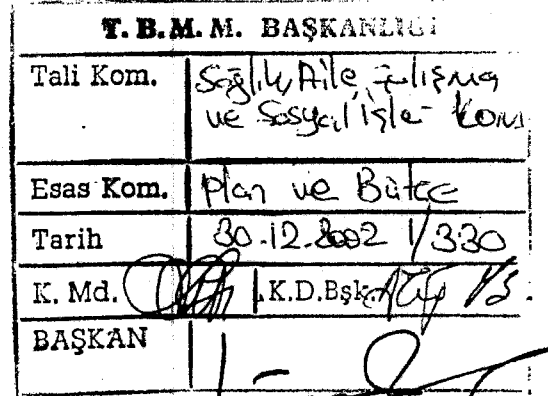 T. B. M. M. BAŞKANLIĞI
Tali Kom. Sağlık, Aile, Çalışma
ve Sosyal işler Kom
Esas Kom. Plan ve Bütçe
Tarih 30.12.2002 1/330
K. Md. K.D.Bşk.
BAŞKAN